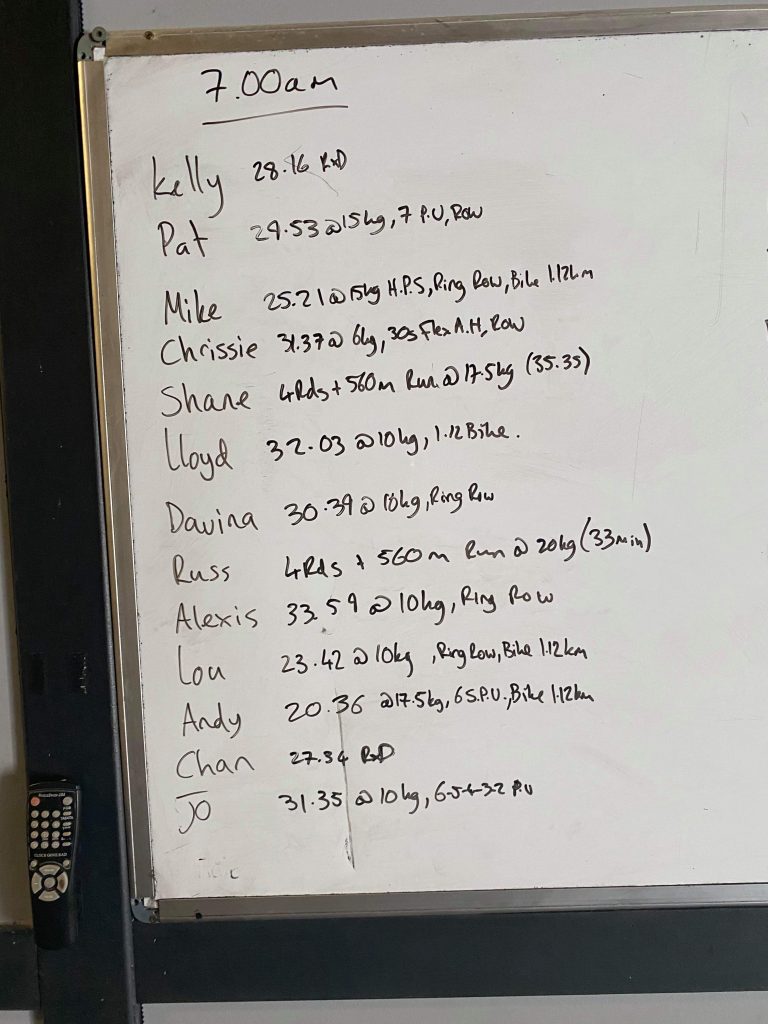 7.00am
Kelly 28.16 RxD
Pat 29.53 @ 15kg, 7 P.U, Row
Mike 25.21 @ 15kg H.P.S, Ring Row, Bike 1.12km
Chrissie 31.37 @ 6kg, 30s Flex A.H, Row
Shane 4Rds + 560m Run @ 17.5kg (35.35)
Lloyd 32.03 @ 10kg, 1.12 Bike.
Davina 30.39 @ 10kg, Ring Row
Russ 4Rds + 560m Run @ 20kg (33min)
Alexis 33.59 @ 10kg, Ring Row
Lou 23.42 @ 10kg, Ring Row, Bike 1.12km
Andy 20.36 @ 17.5kg, 6 S.P.U., Bike 1.12km
Chan 27.34 RxD
JO 31.35 @ 10kg, 6-5-4-3-2 P.U